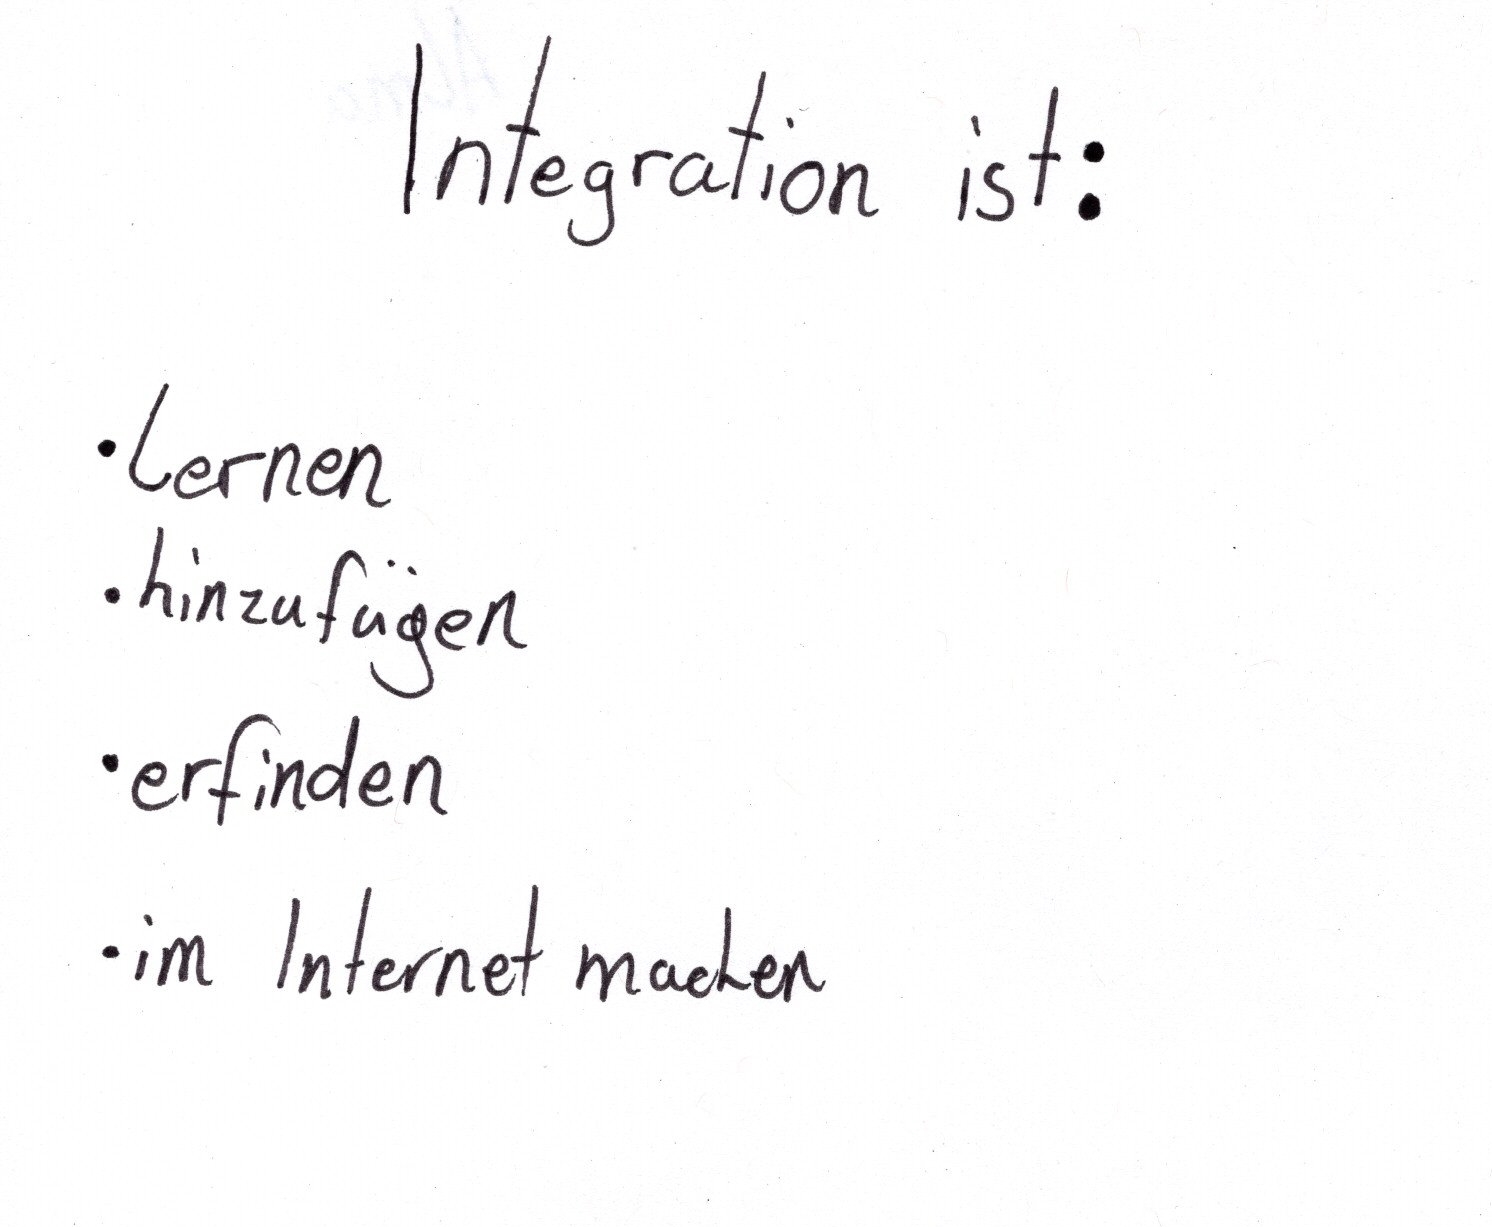 Integration ist:
• Lernen
• hinzufügen
• erfinden
• im Internet machen